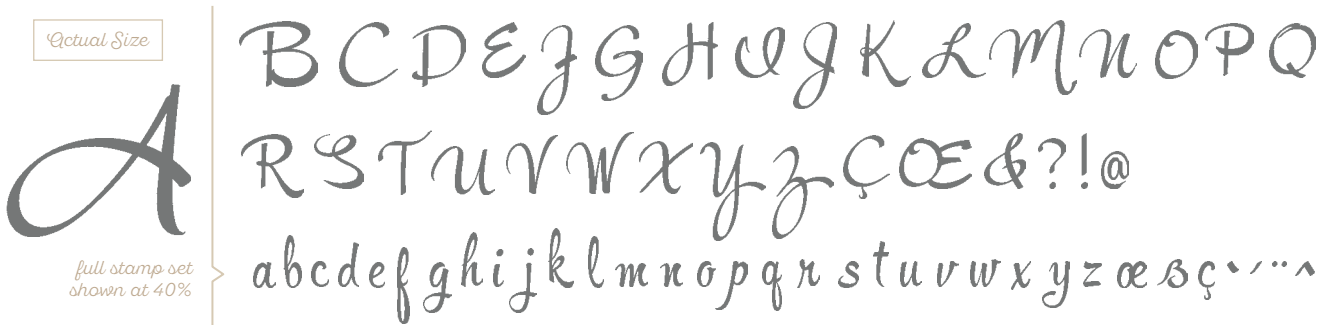 Actual Size
A
full stamp set
shown at 40%
B C D E F G H I J K L M N O P Q
R S T U V W X Y Z Ç Œ & ? ! @
a b c d e f g h i j k l m n o p q r s t u v w x y z æ ß ç ` ´ ¨ ^